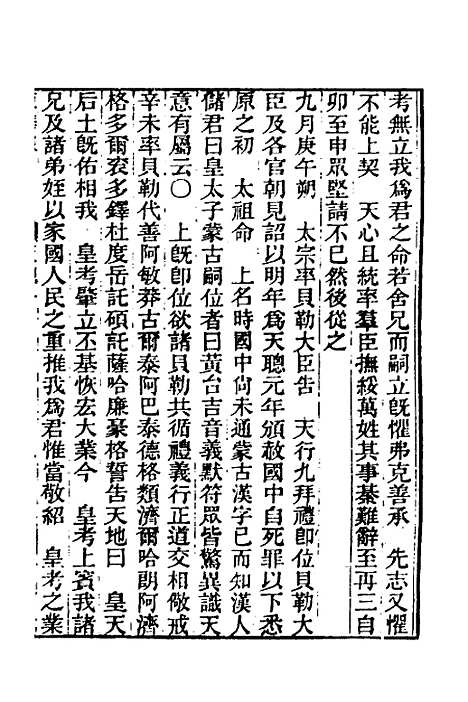 考無立我爲君之命若舍兄而嗣立既懼弗克善承　先志又懼
不能上契　天心且統率羣臣撫綏萬姓其事綦難辭至再三自
卯至申眾堅請不已然後從之
九月庚午朔　太宗率貝勒大臣告　天行九拜禮卽位貝勒大
臣及各官朝見詔以明年爲天聰元年頒赦國中自死罪以下悉
原之初　太祖命　上名時國中尙未通蒙古漢字已而知漢人
儲君曰皇太子蒙古嗣位者曰黃台吉音義默符眾皆驚異識天
意有屬云〇　上既卽位欲諸貝勒共循禮義行正道交相儆戒
辛未率貝勒代善阿敏莽古爾泰阿巴泰德格類濟爾哈朗阿濟
格多爾袞多鐸杜度岳託碩託薩哈廉豪格誓告天地曰　皇天
后土既佑相我　皇考肇立丕基恢宏大業今　皇考上賓我諸
兄及諸弟姪以家國人民之重推我爲君惟當敬紹　皇考之業